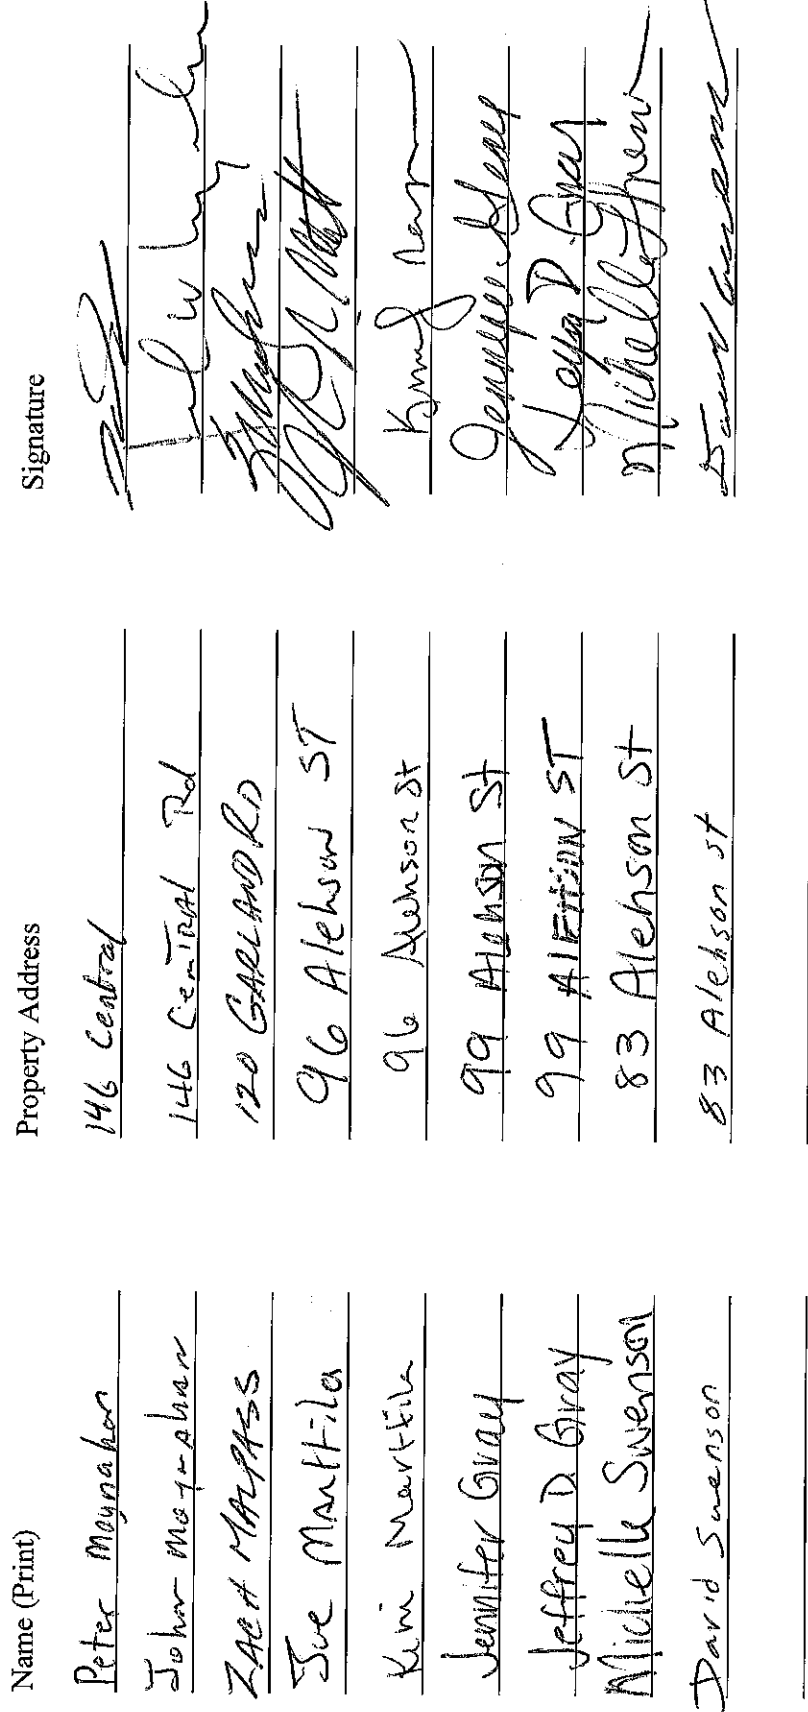 Name (Print) Property Address Signature
Peter Moynahan 146 Central
John Moynahan 146 Central Rd
ZACH MALPASS 120 GARLAND RD
Joe Marttila 96 Alehson ST
Kim Marttila 96 Alehson St
Jennifer Gray 99 Alehson St Jennifer Gray
Jeffrey D. Gray 99 ST Jeffrey D. Gray
Michelle Swenson 83 Alehson St Michelle Swenson
David Swenson 83 Alehson st